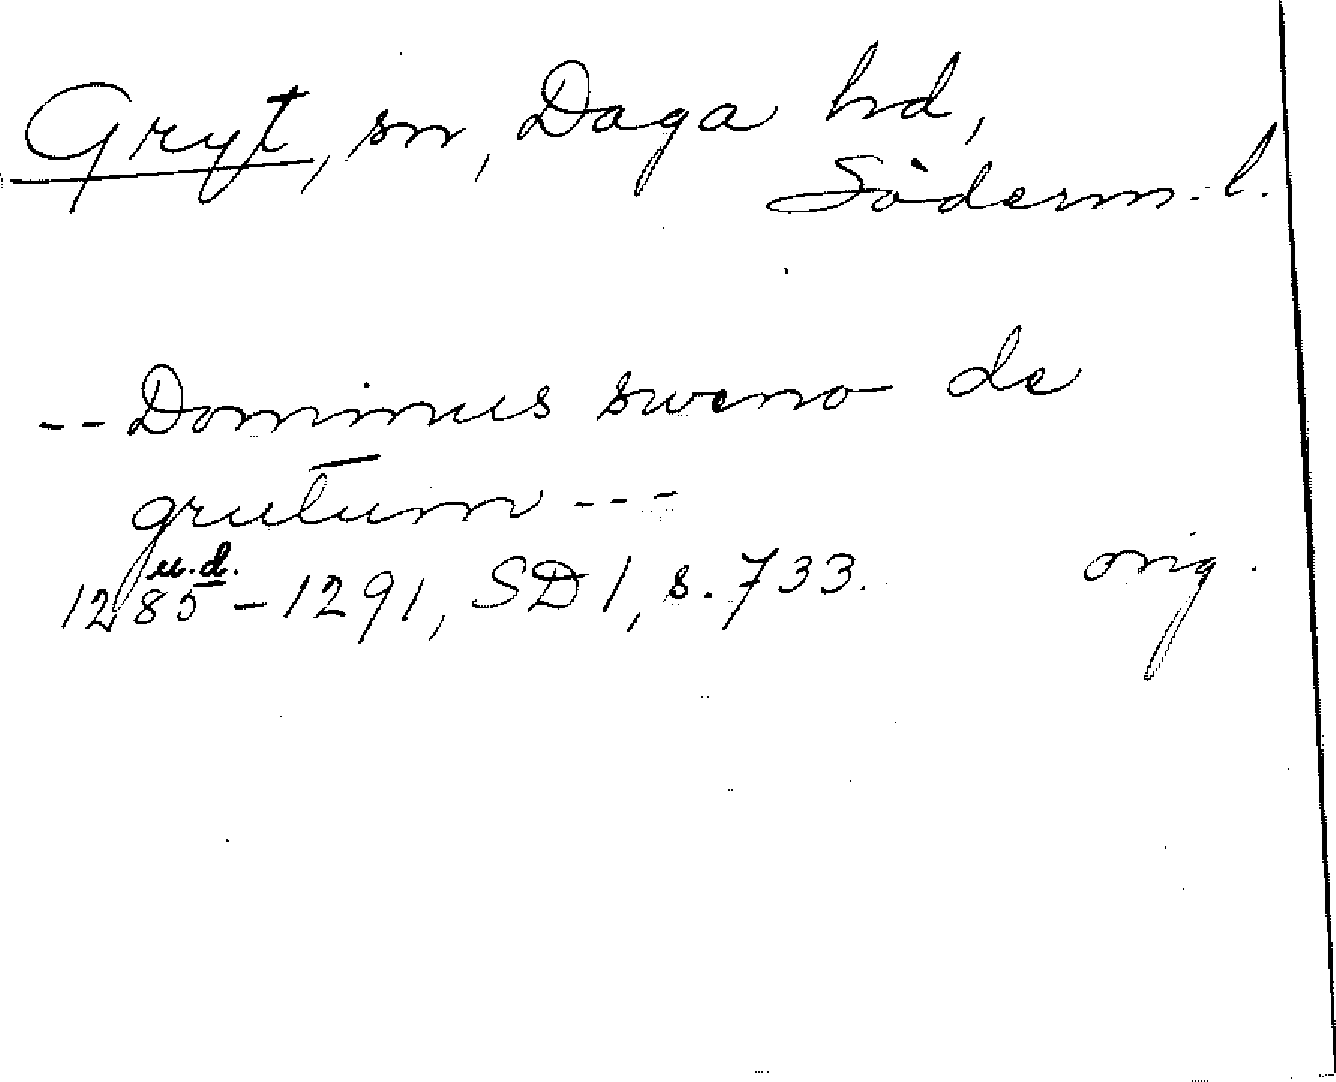 Gryt, sn, Daga hd,
Söderm. l.
-- Dominus sweno de
grutum ---
u.d.
1285-1291, SD 1, s. 733. orig.